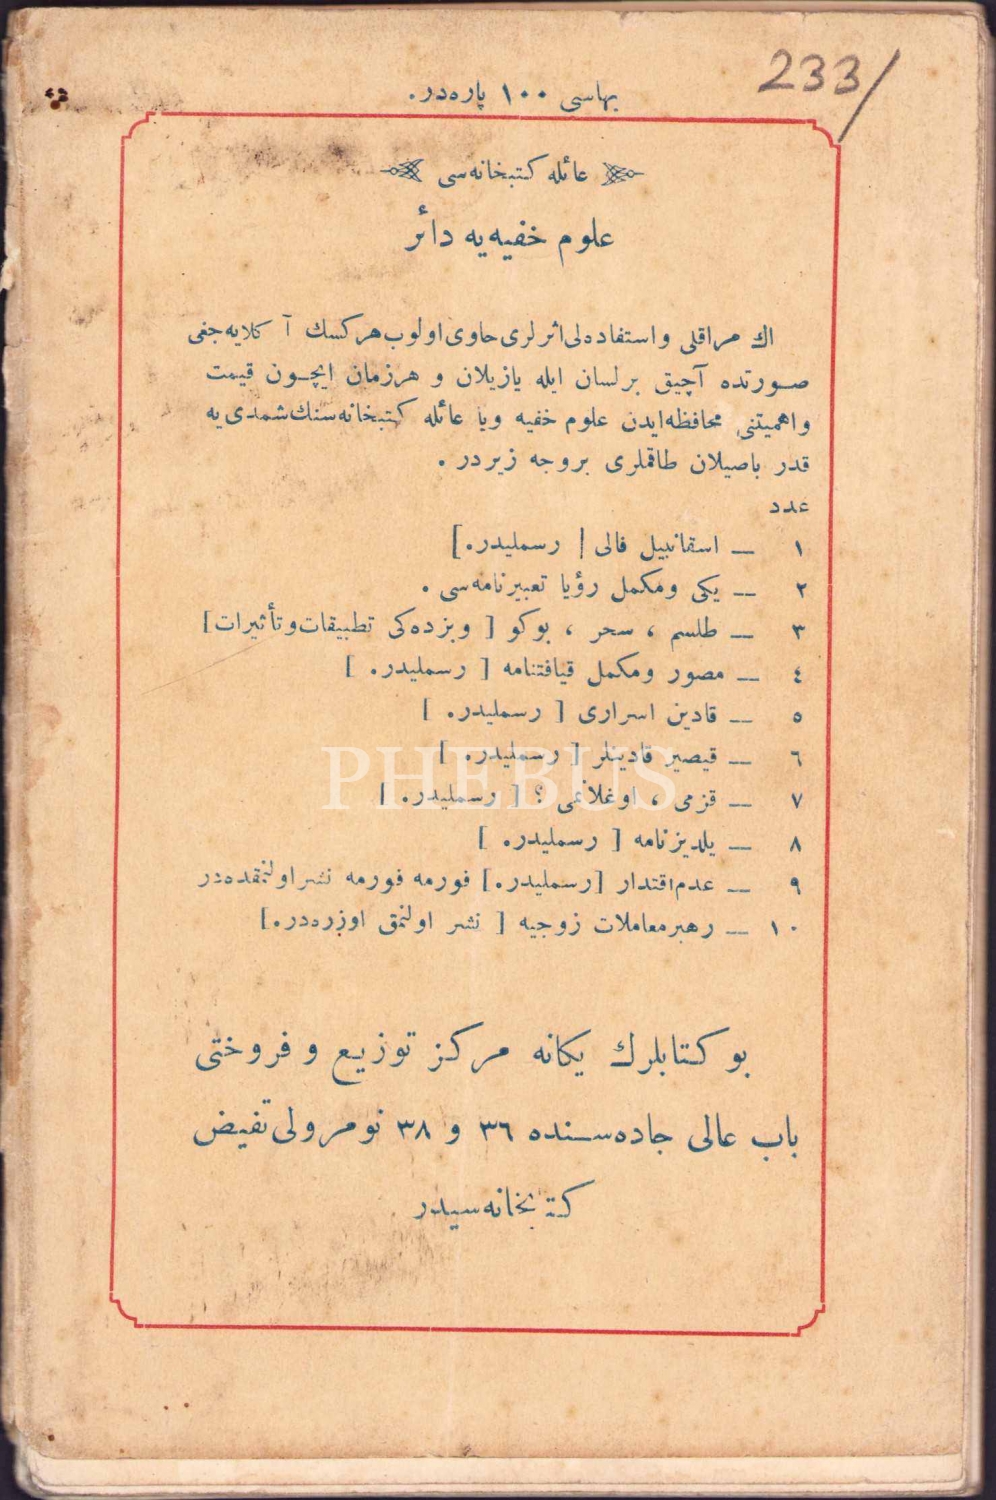 233/
بهاسی ١٠٠ پاره‌در.
عائله کتبخانه‌سی
علوم خفیه‌یه دائر
اك مراقلی و استفاده‌لی اثرلری حاوی اولوب هرکسك آکلایه‌جغی
صورتده آچیق برلسان ایله یازیلان و هرزمان ایچون قیمت
واهمیتنی محافظه‌ایدن علوم خفیه ویا عائله کتبخانه‌سنك شمدی‌یه
قدر باصیلان طاقملری بروجه زیردر .
عدد
١ — اسقانبیل فالی [ رسملیدر.]
٢ — یکی ومکمل رؤیا تعبیرنامه‌سی .
٣ — طلسم ، سحر ، بوکو [ وبزده‌کی تطبیقات‌وتأثیرات]
٤ — مصور ومکمل قیافتنامه [ رسملیدر. ]
٥ — قادین اسراری [ رسملیدر. ]
٦ — قیصیر قادینلر [ رسملیدر. ]
٧ — قزمی ، اوغلانمی ؟ [ رسملیدر. ]
٨ — یلدیزنامه [ رسملیدر. ]
٩ — عدم‌اقتدار [رسملیدر.] فورمه فورمه نشراولنمقده‌در
١٠ — رهبرمعاملات زوجیه [ نشر اولنمق اوزره‌در.]
PHEBUS
بو کتابلرك یکانه مرکز توزیع و فروختی
باب عالی جاده‌سنده ٣٦ و ٣٨ نومرولی تفیض
کتبخانه‌سیدر